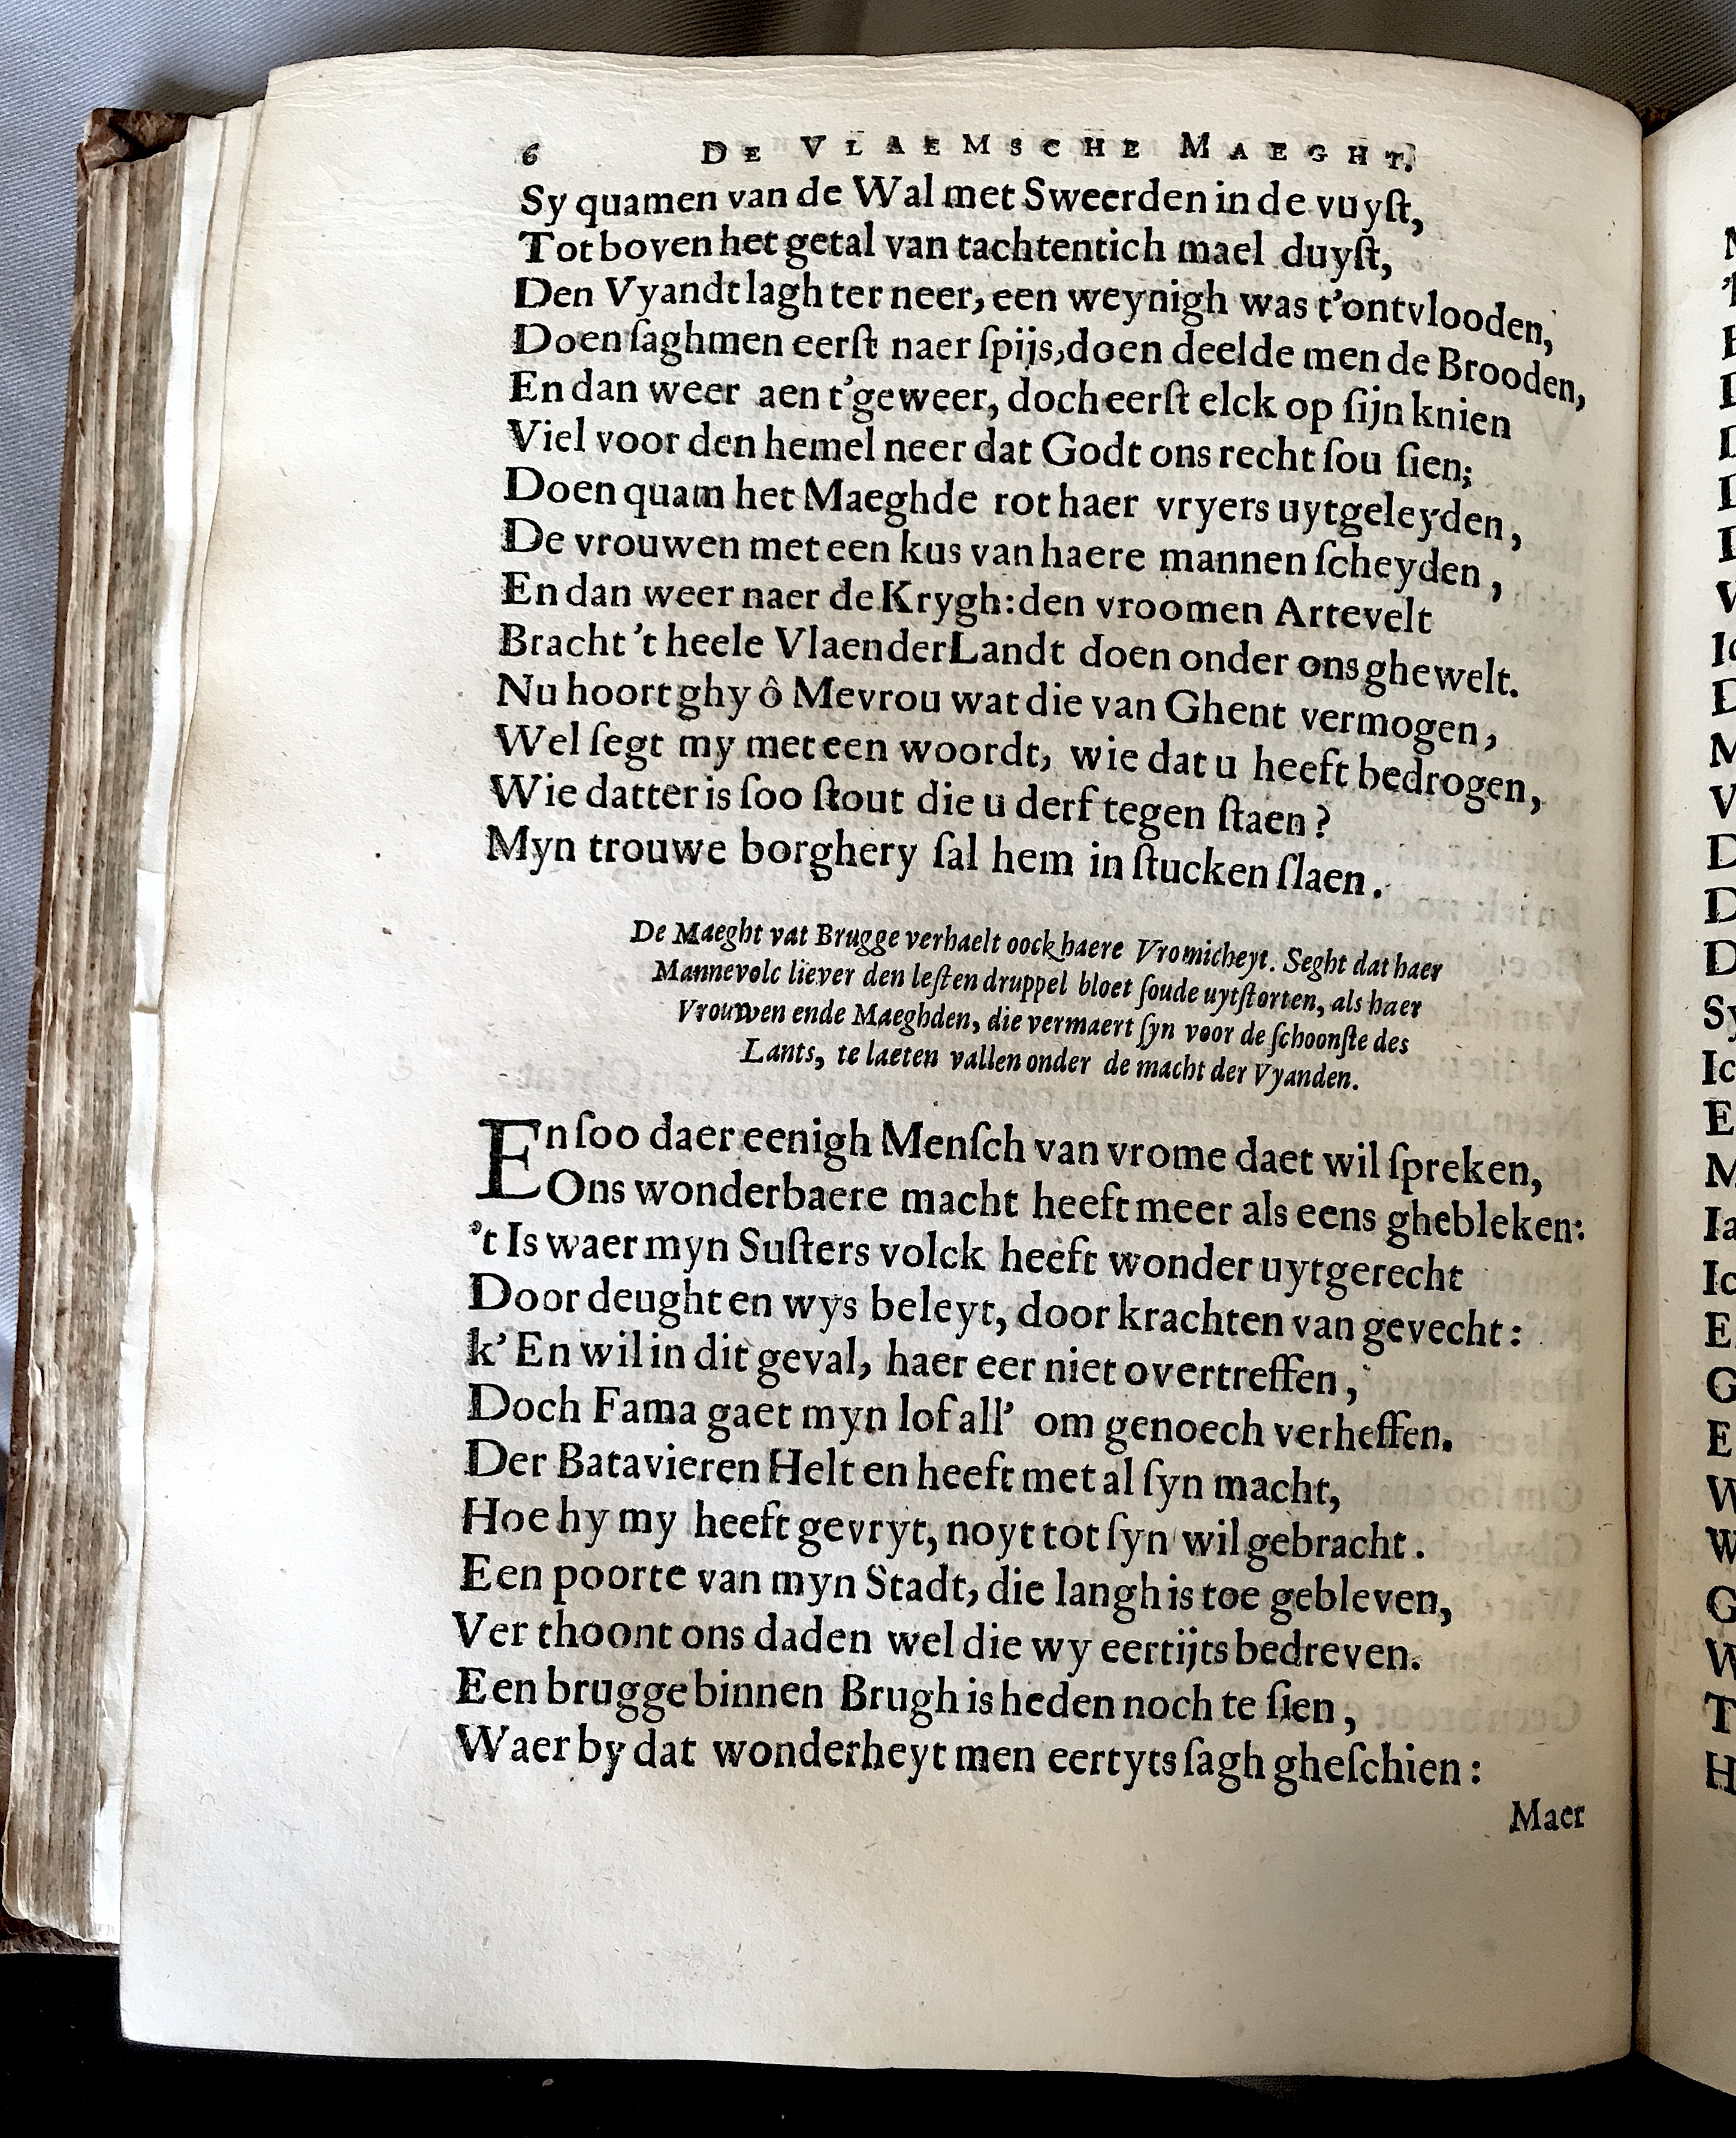 6 DE VLAEMSCHE MAEGHT.
Sy quamen van de Wal met Sweerden in de vuyſt,
Tot boven het getal van tachtentich mael duyſt,
Den Vyandt lagh ter neer, een weynigh was t'ontvlooden,
Doen ſaghmen eerſt naer ſpijs, doen deelde men de Brooden,
En dan weer aen t'geweer, doch eerſt elck op ſijn knien
Viel voor den hemel neer dat Godt ons recht ſou ſien;
Doen quam het Maeghde rot haer vryers uytgeleyden,
De vrouwen met een kus van haere mannen ſcheyden,
En dan weer naer de Krygh: den vroomen Artevelt
Bracht 't heele Vlaender Landt doen onder ons ghewelt.
Nu hoort ghy ô Mevrou wat die van Ghent vermogen,
Wel ſegt my met een woordt, wie dat u heeft bedrogen,
Wie datter is ſoo ſtout die u derf tegen ſtaen?
Myn trouwe borghery ſal hem in ſtucken ſlaen.
De Maeght vat Brugge verhaelt oock haere Vromicheyt. Seght dat haer
Mannevolc liever den leſten druppel bloet ſoude uytſtorten, als haer
Vrouwen ende Maeghden, die vermaert ſyn voor de ſchoonſte des
Lants, te laeten vallen onder de macht der Vyanden.
En ſoo daer eenigh Menſch van vrome daet wil ſpreken,
Ons wonderbaere macht heeft meer als eens ghebleken:
't Is waer myn Suſters volck heeft wonder uytgerecht
Door deught en wys beleyt, door krachten van gevecht:
k' En wil in dit geval, haer eer niet overtreffen,
Doch Fama gaet myn lof all' om genoech verheffen.
Der Batavieren Helt en heeft met al ſyn macht,
Hoe hy my heeft gevryt, noyt tot ſyn wil gebracht.
Een poorte van myn Stadt, die langh is toe gebleven,
Ver thoont ons daden wel die wy eertijts bedreven.
Een brugge binnen Brugh is heden noch te ſien,
Waer by dat wonderheyt men eertyts ſagh gheſchien:
Maer